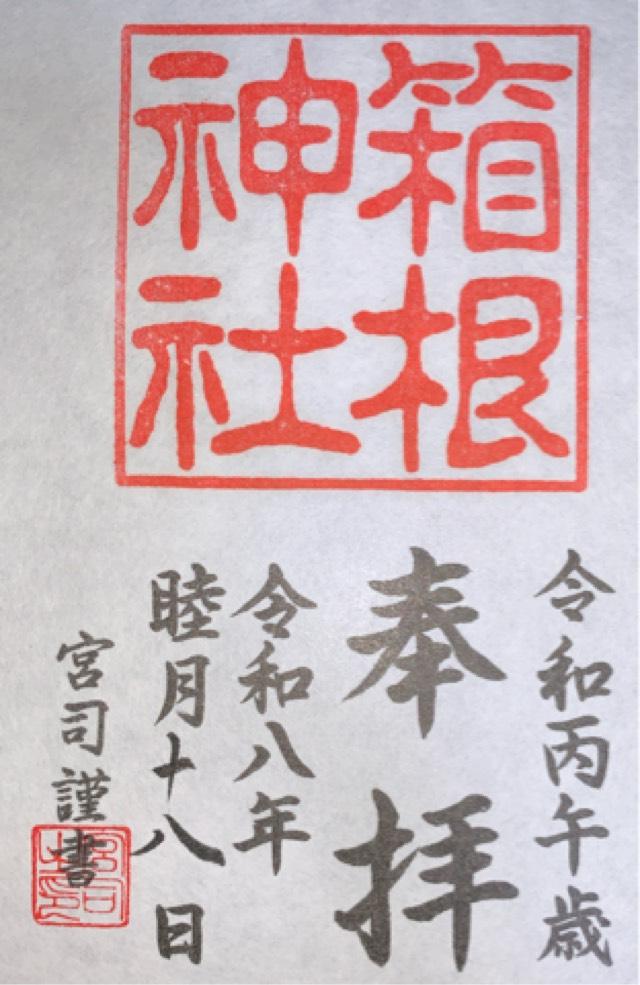 箱根
神社
令和丙午歳
奉拝
令和八年
睦月十八日
宮司謹書